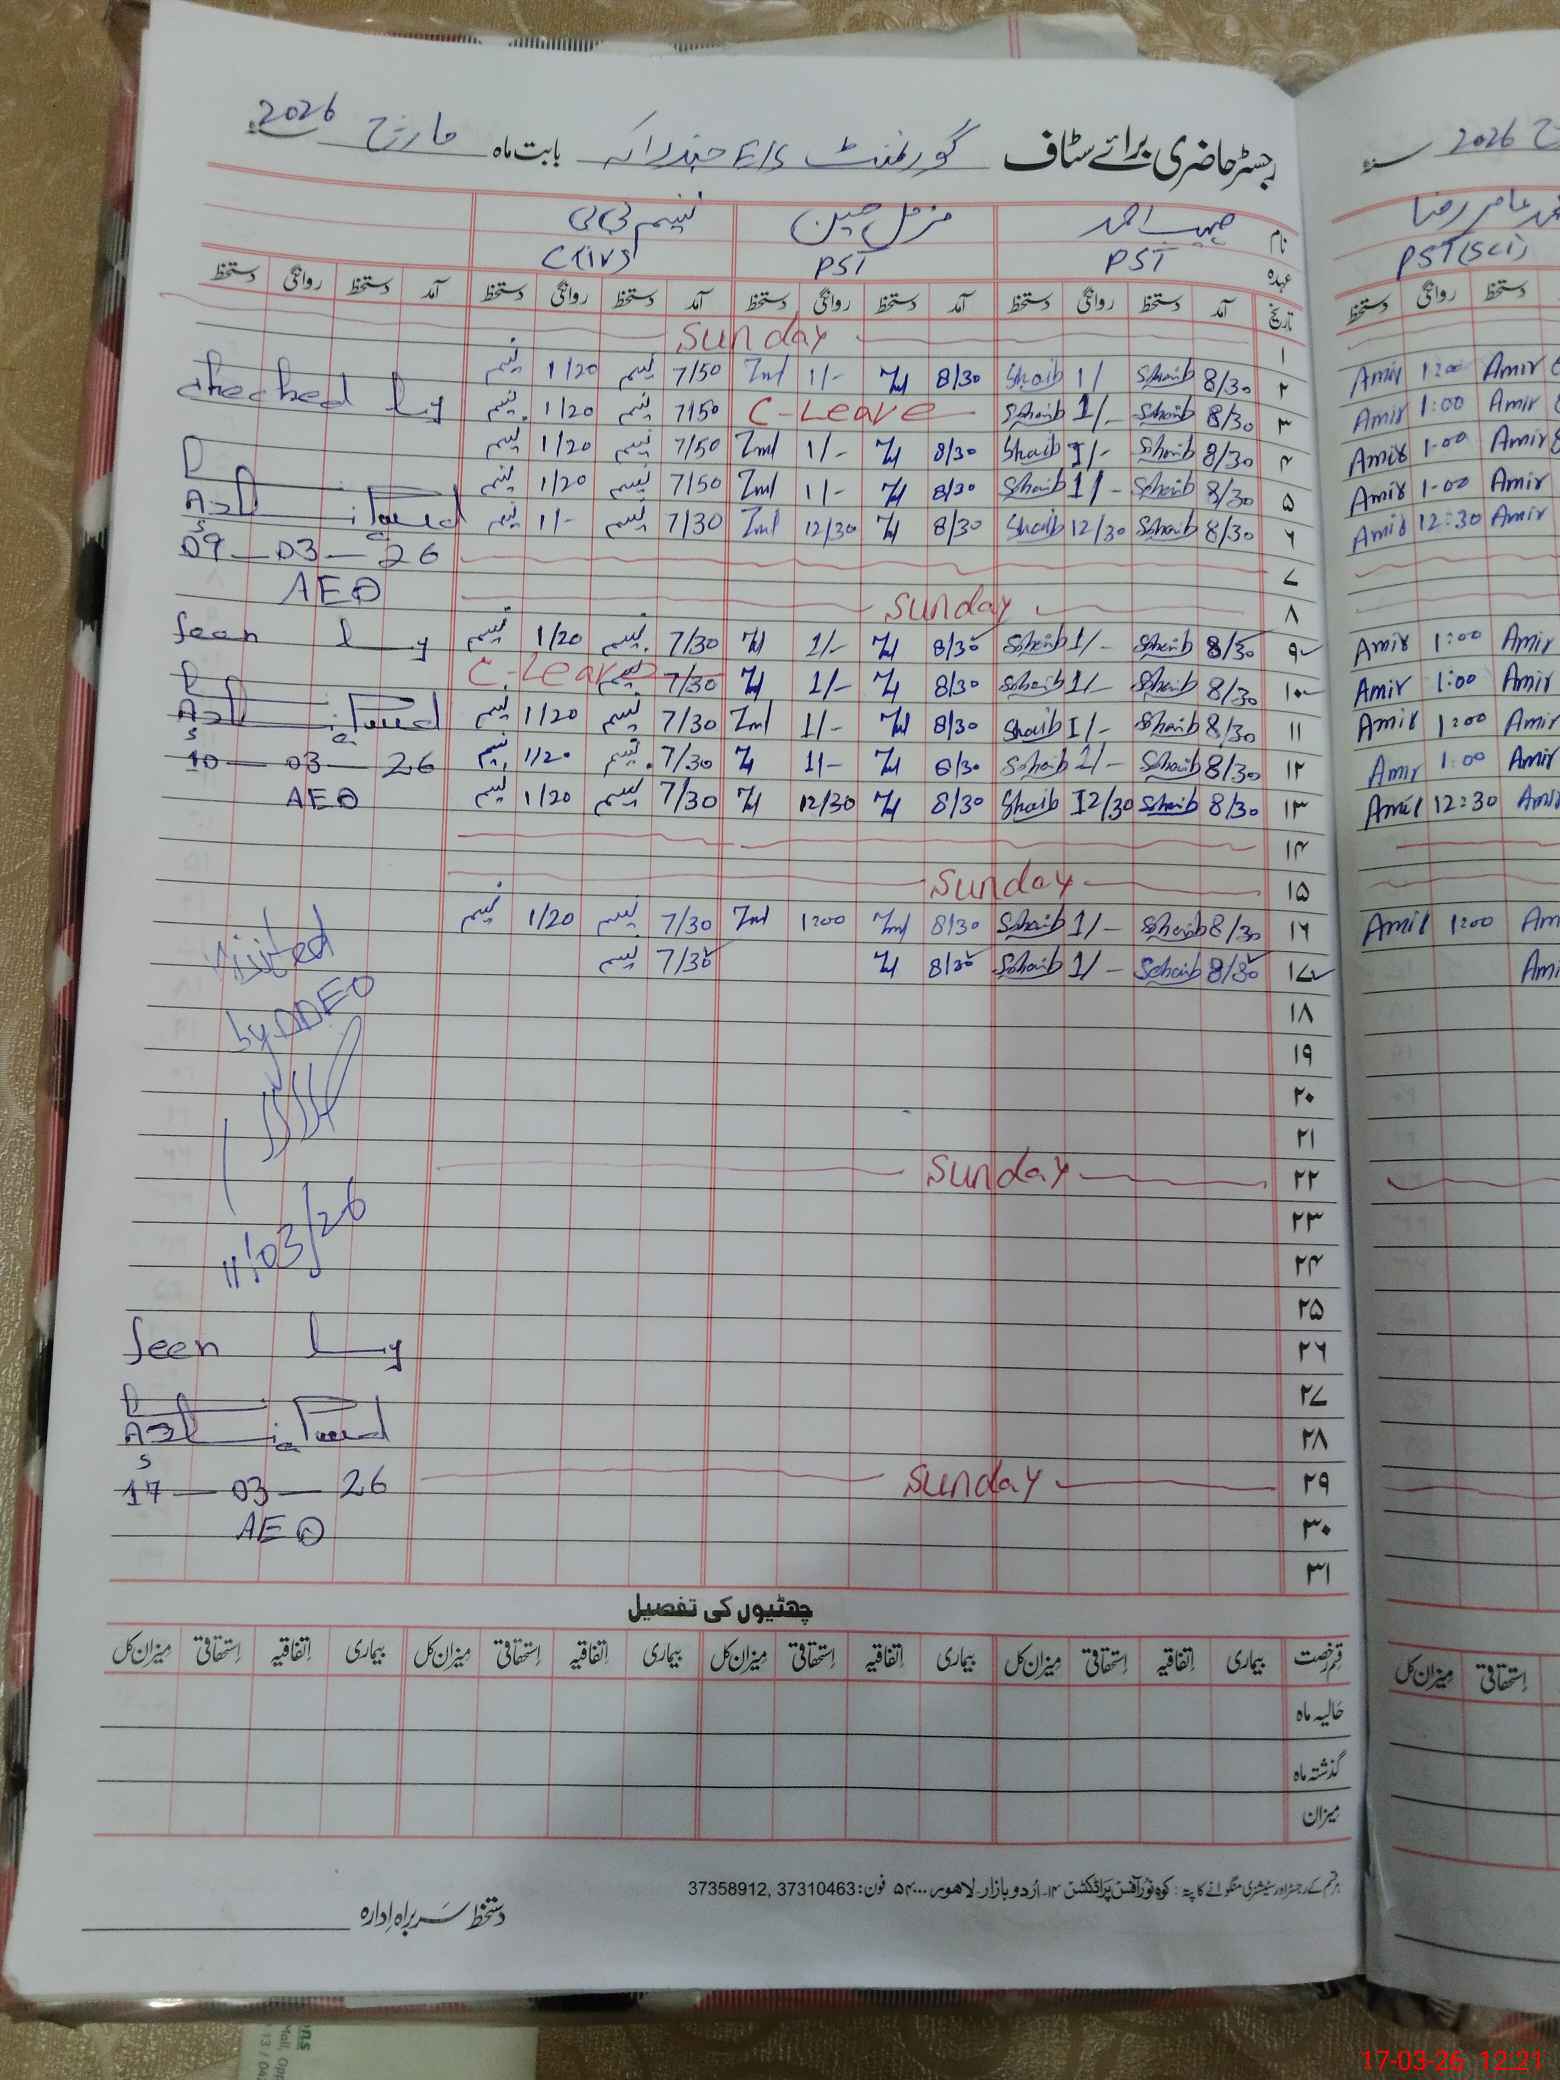 رجسٹر حاضری برائے سٹاف گورنمنٹ E/S بابت ماہ مارچ 2026
نام صہیب احمد مزمل حسین نسیم بی بی
عہدہ PST PST
تاریخ آمد دستخط روانگی دستخط آمد دستخط روانگی دستخط آمد دستخط روانگی دستخط آمد دستخط روانگی دستخط
۱ Sunday
۲ 8/30 Sohaib 1/ Sohaib 8/30 1/- 7/50 نسیم 1/20 نسیم
۳ 8/30 Sohaib 1/- Sohaib C-Leave 7/50 نسیم 1/20 نسیم
۴ 8/30 Sohaib 1/- Sohaib 8/30 1/- 7/50 نسیم 1/20 نسیم
۵ 8/30 Sohaib 1/- Sohaib 8/30 1/- 7/50 نسیم 1/20 نسیم
۶ 8/30 Sohaib 12/30 Sohaib 8/30 12/30 7/30 نسیم 1/- نسیم
۷
۸ Sunday
۹ 8/30 Sohaib 1/- Sohaib 8/30 1/- 7/30 نسیم 1/20 نسیم
۱۰ 8/30 Sohaib 1/- Sohaib 8/30 1/- 7/30 نسیم C-Leave
۱۱ 8/30 Sohaib 1/- Sohaib 8/30 1/- 7/30 نسیم 1/20 نسیم
۱۲ 8/30 Sohaib 1/- Sohaib 8/30 1/- 7/30 نسیم 1/20 نسیم
۱۳ 8/30 Sohaib 12/30 Sohaib 8/30 12/30 7/30 نسیم 1/20 نسیم
۱۴
۱۵ Sunday
۱۶ 8/30 Sohaib 1/- Sohaib 8/30 1:00 7/30 نسیم 1/20 نسیم
۱۷ 8/30 Sohaib 1/- Sohaib 8/30 7/30 نسیم
۱۸
۱۹
۲۰
۲۱
۲۲ Sunday
۲۳
۲۴
۲۵
۲۶
۲۷
۲۸
۲۹ Sunday
۳۰
۳۱
checked by
09-03-26
AEO
Seen by
10-03-26
AEO
visited
by DDEO
11/03/26
Seen by
17-03-26
AEO
چھٹیوں کی تفصیل
قسم رخصت بیماری اتفاقیہ استحقاقی میزان کل بیماری اتفاقیہ استحقاقی میزان کل بیماری اتفاقیہ استحقاقی میزان کل بیماری اتفاقیہ استحقاقی میزان کل
حالیہ ماہ
گذشتہ ماہ
میزان
ہر قسم کے رجسٹر اور سٹیشنری منگوانے کا پتہ: کوہ نور آفس پراڈکٹس ۱۴۔ اردو بازار۔ لاہور ۵۴۰۰۰ فون: 37310463, 37358912
دستخط سربراہ ادارہ
2026
عامر رضا
PST (SCI)
دستخط روانگی دستخط
Amir 1:00 Amir
Amir 1:00 Amir
Amir 1:00 Amir
Amir 1:00 Amir
Amir 12:30 Amir
Amir 1:00 Amir
Amir 1:00 Amir
Amir 1:00 Amir
Amir 1:00 Amir
Amir 12:30
Amir 1:00
میزان کل استحقاقی
17-03-26 12:21